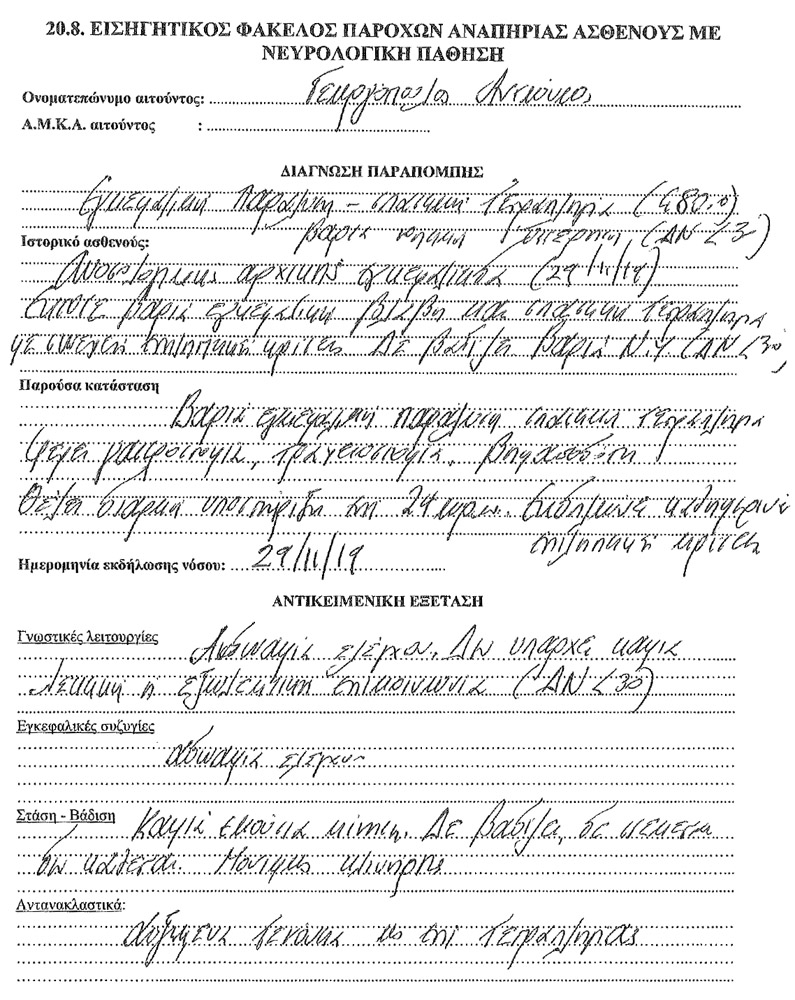 20.8. ΕΙΣΗΓΗΤΙΚΟΣ ΦΑΚΕΛΟΣ ΠΑΡΟΧΩΝ ΑΝΑΠΗΡΙΑΣ ΑΣΘΕΝΟΥΣ ΜΕ
ΝΕΥΡΟΛΟΓΙΚΗ ΠΑΘΗΣΗ
Ονοματεπώνυμο αιτούντος: Γεωργόπουλος
Α.Μ.Κ.Α. αιτούντος :
ΔΙΑΓΝΩΣΗ ΠΑΡΑΠΟΜΠΗΣ
Εγκεφαλική παράλυση - σπαστική τετραπληγία (G80.0)
βαριά νοητική υστέρηση (ΔΝ <30)
Ιστορικό ασθενούς:
αρχικής εγκεφαλίτιδα (29/11/19)
Έκτοτε βαριά εγκεφαλική βλάβη και σπαστική τετραπληγία
με συνεχείς επιληπτικές κρίσεις. Δε βαδίζει Βαριά Ν.Υ. (ΔΝ <30)
Παρούσα κατάσταση
Βαριά εγκεφαλική παράλυση σπαστική τετραπληγία
Φέρει γαστροστομία, τραχειοστομία.
Θέλει διαρκή υποστήριξη επί 24ωρου. Εκδηλώνει καθημερινά
επιληπτικές κρίσεις
Ημερομηνία εκδήλωσης νόσου: 29/11/19
ΑΝΤΙΚΕΙΜΕΝΙΚΗ ΕΞΕΤΑΣΗ
Γνωστικές λειτουργίες Αδυναμία ελέγχου. Δεν υπάρχει καμία
λεκτική ή εξωλεκτική επικοινωνία (ΔΝ <30)
Εγκεφαλικές συζυγίες
αδυναμία ελέγχου
Στάση - Βάδιση Καμία εκούσια κίνηση. Δε βαδίζει, δε στέκεται
δεν κάθεται. Μόνιμως κλινήρης
Αντανακλαστικά:
Αυξημένα τενόντια ως επί τετραπληγίας